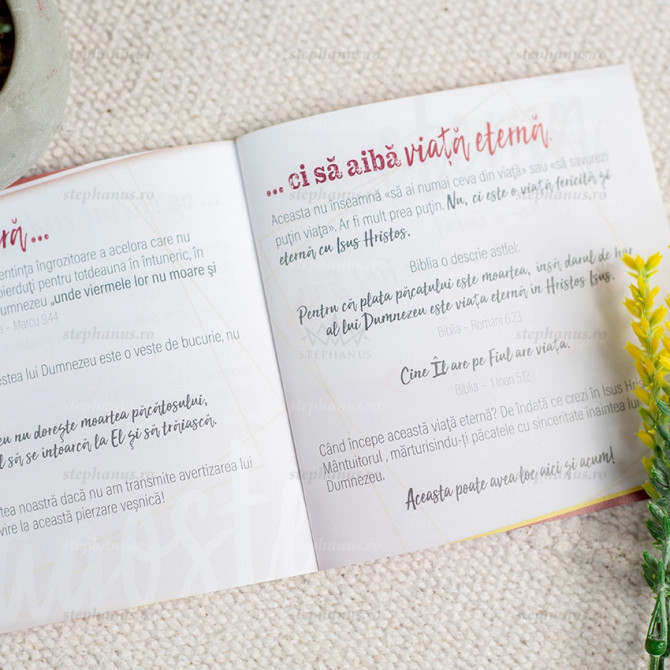 ră...
entința îngrozitoare a acelora care nu
pierduți pentru totdeauna în întuneric, în
umnezeu „unde viermele lor nu moare și
– Marcu 9:44
estea lui Dumnezeu este o veste de bucurie, nu
eu nu dorește moartea păcătosului,
să se întoarcă la El și să trăiască.
tea noastră dacă nu am transmite avertizarea lui
vire la această pierzare veșnică!
... ci să aibă viață eternă.
Aceasta nu înseamnă «să ai numai ceva din viață» sau «să savurezi
puțin viața». Ar fi mult prea puțin. Nu, ci este o viață fericită și
eternă cu Isus Hristos.
Biblia o descrie astfel:
Pentru că plata păcatului este moartea, însă darul de har
al lui Dumnezeu este viața eternă în Hristos Isus.
Biblia – Romani 6:23
STEPHANUS
Cine Îl are pe Fiul are viața.
Biblia – 1 Ioan 5:12
Când începe această viață eternă? De îndată ce crezi în Isus Hris
Mântuitorul, mărturisindu-ți păcatele cu sinceritate înaintea lui
Dumnezeu.
Aceasta poate avea loc aici și acum!
stephanus.ro